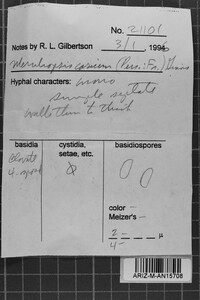 No. 21101
Notes by R. L. Gilbertson 3/1 1996
Meruliopsis corium (Pers.: Fr.) Ginns
Hyphal characters: mono
simple septate
walls thin to thick
basidia cystidia, setae, etc. basidiospores
clavate
4-
color –
Melzer's –
2 –
4 – µ
ARIZ-M-AN15708